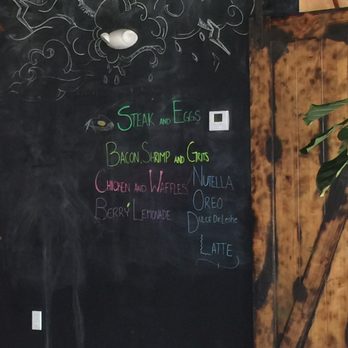 Steak and Eggs
Bacon, Shrimp and Grits
Chicken and Waffles
Berry Lemonade
Nutella
Oreo
Dulce De Leche
Latte